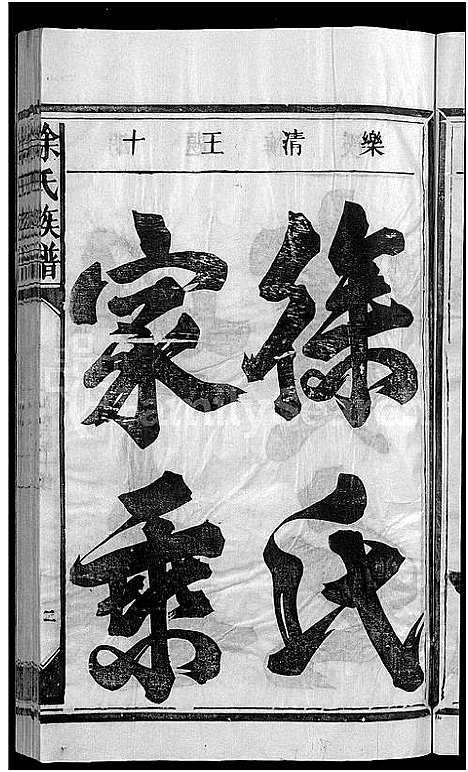 樂清王十
徐氏
家乘
徐氏族譜
二
FamilySearch